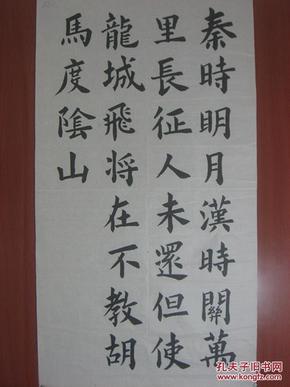 秦時明月漢時關萬
里長征人未還但使
龍城飛将在不教胡
馬度陰山
孔夫子旧书网